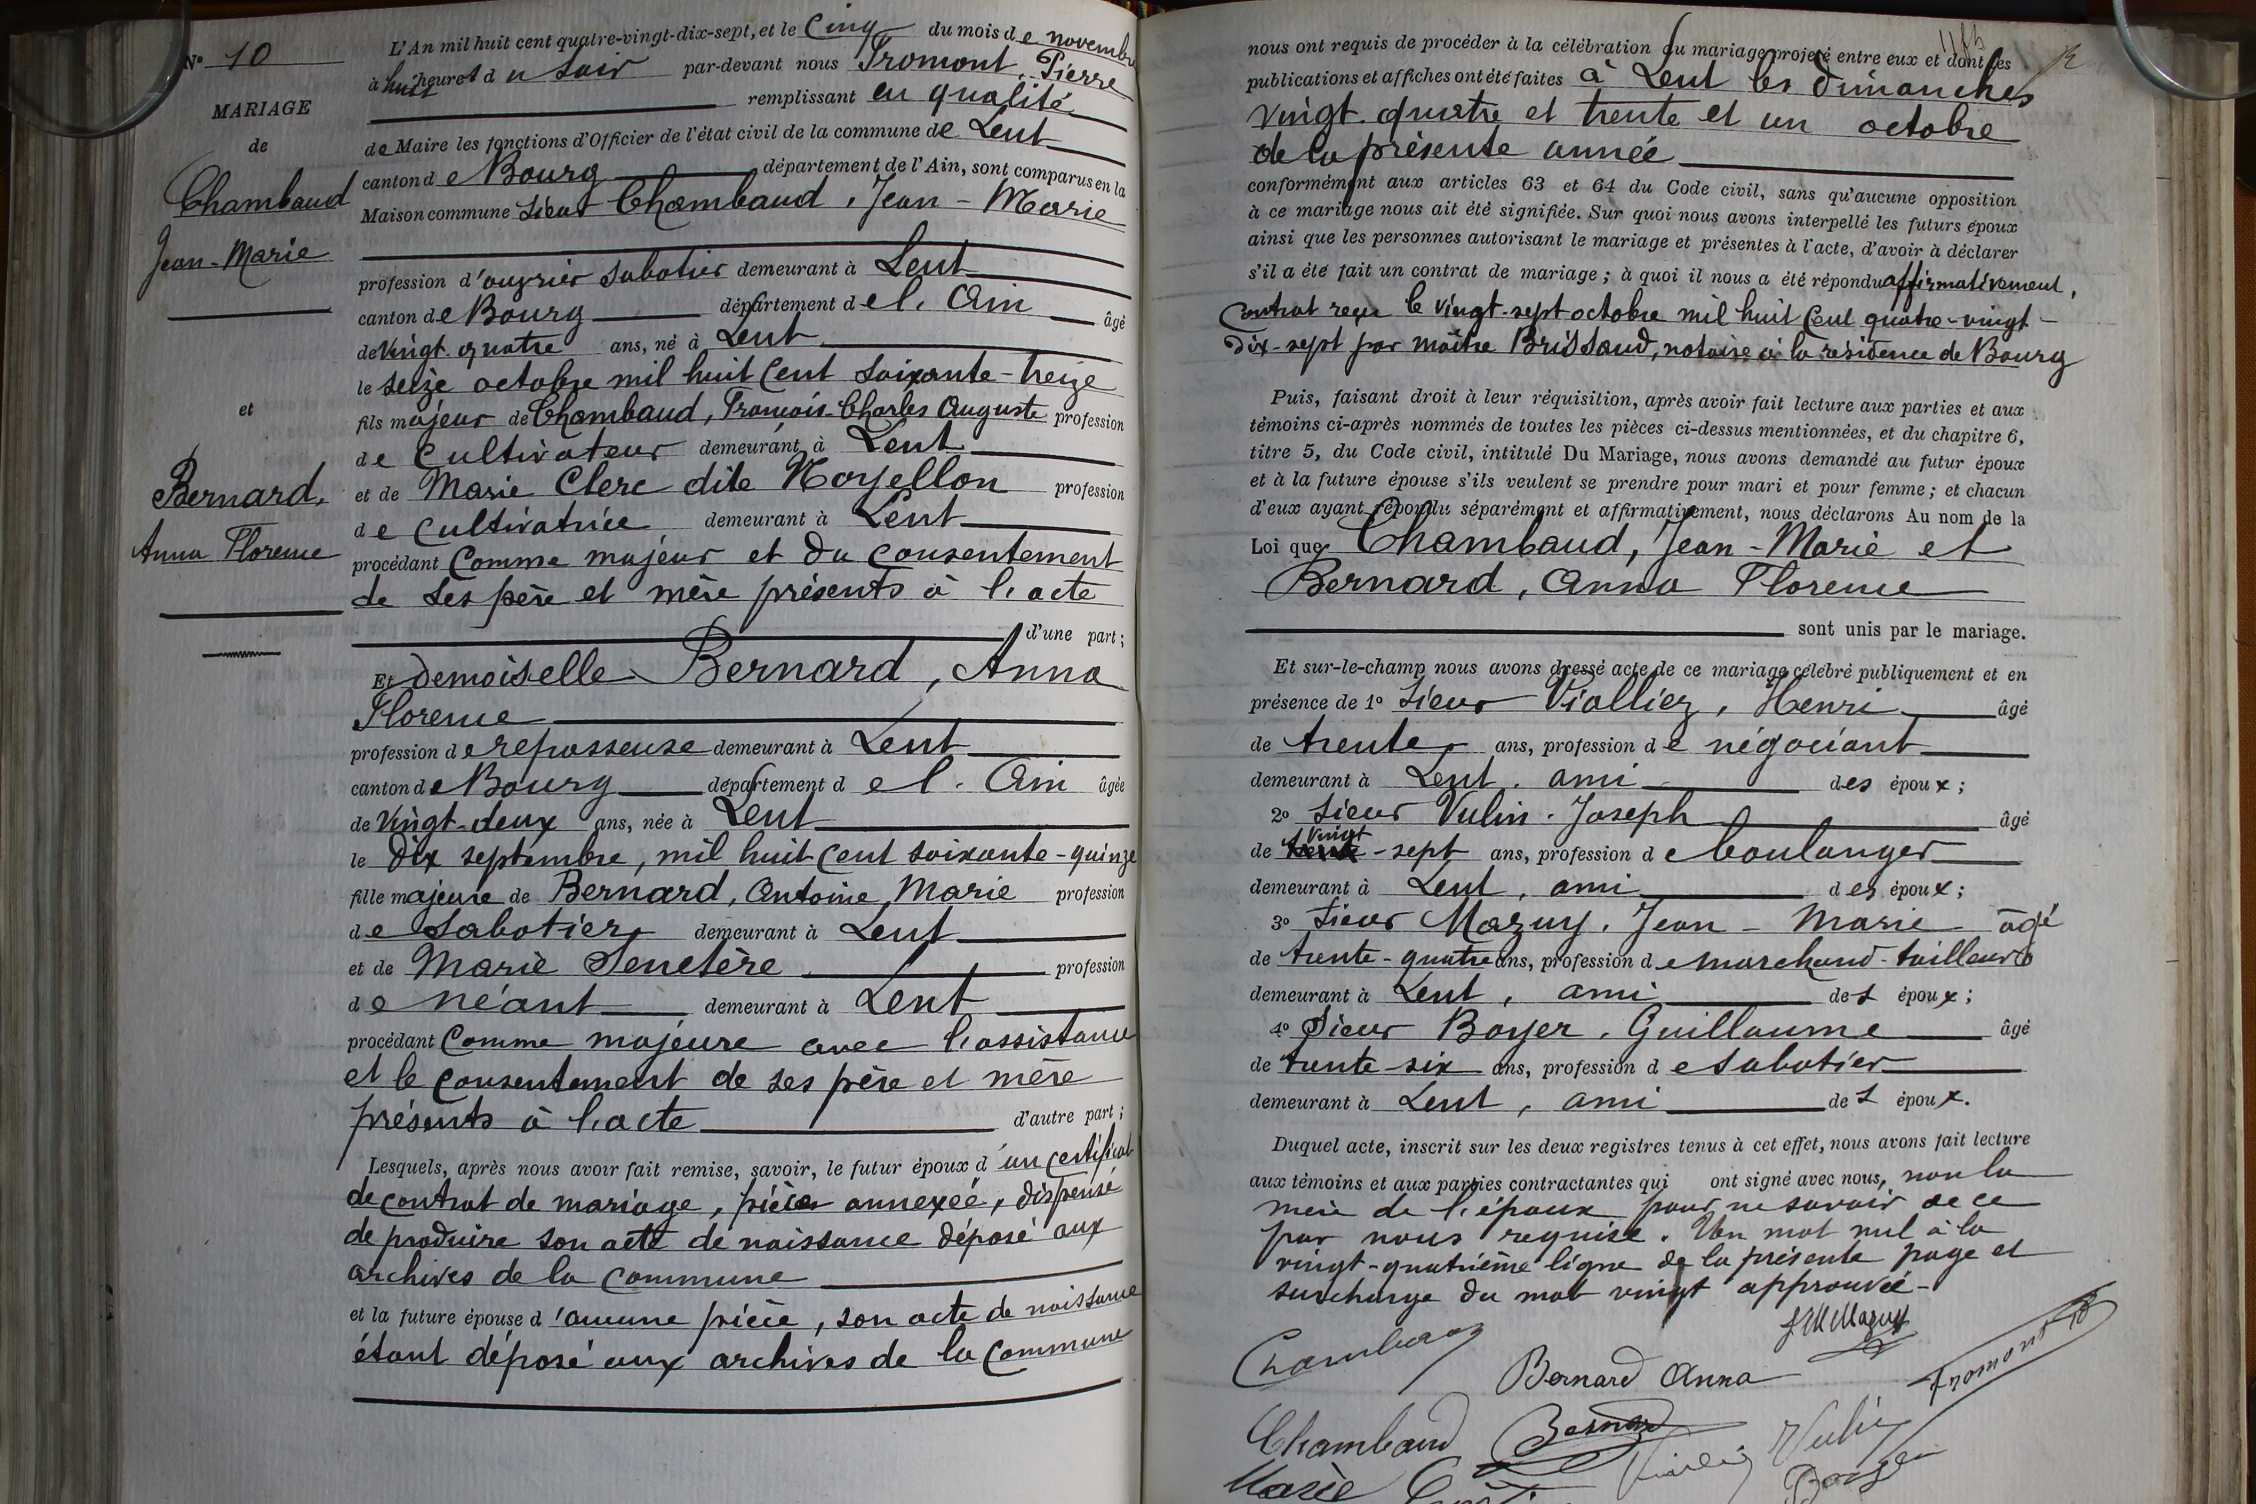 N° 10
MARIAGE
de
Chambaud
Jean-Marie
et
Bernard,
Anna Florence
L'An mil huit cent quatre-vingt-dix-sept, et le Cinq du mois de novembre
à huit heures du soir par-devant nous Fromont, Pierre
remplissant en qualité
de Maire les fonctions d'Officier de l'état civil de la commune de Lent
canton de Bourg département de l'Ain, sont comparus en la
Maison commune sieur Chambaud, Jean-Marie
profession d'ouvrier sabotier demeurant à Lent
canton de Bourg département de l'Ain âgé
de vingt-quatre ans, né à Lent
le seize octobre mil huit cent soixante-treize
fils majeur de Chambaud, François-Charles Auguste profession
de cultivateur demeurant à Lent
et de Marie Clerc dite Noyellon profession
de cultivatrice demeurant à Lent
procédant comme majeur et du consentement
de ses père et mère présents à l'acte
d'une part;
Et demoiselle Bernard, Anna
Florence
profession de repasseuse demeurant à Lent
canton de Bourg département de l'Ain âgée
de vingt-deux ans, née à Lent
le dix septembre, mil huit cent soixante-quinze
fille majeure de Bernard, Antoine Marie profession
de sabotier demeurant à Lent
et de Marie Senetère profession
de néant demeurant à Lent
procédant comme majeure avec l'assistance
et le consentement de ses père et mère
présents à l'acte d'autre part;
Lesquels, après nous avoir fait remise, savoir, le futur époux d'un certificat
de contrat de mariage, pièce annexée, dispensé
de produire son acte de naissance déposé aux
archives de la commune
et la future épouse d'aucune pièce, son acte de naissance
étant déposé aux archives de la commune
nous ont requis de procéder à la célébration du mariage projeté entre eux et dont les
publications et affiches ont été faites à Lent les dimanches
vingt-quatre et trente et un octobre
de la présente année
conformément aux articles 63 et 64 du Code civil, sans qu'aucune opposition
à ce mariage nous ait été signifiée. Sur quoi nous avons interpellé les futurs époux
ainsi que les personnes autorisant le mariage et présentes à l'acte, d'avoir à déclarer
s'il a été fait un contrat de mariage; à quoi il nous a été répondu affirmativement,
contrat reçu le vingt-sept octobre mil huit cent quatre-vingt-
dix-sept par maître Brissaud, notaire à la résidence de Bourg
Puis, faisant droit à leur réquisition, après avoir fait lecture aux parties et aux
témoins ci-après nommés de toutes les pièces ci-dessus mentionnées, et du chapitre 6,
titre 5, du Code civil, intitulé Du Mariage, nous avons demandé au futur époux
et à la future épouse s'ils veulent se prendre pour mari et pour femme; et chacun
d'eux ayant répondu séparément et affirmativement, nous déclarons Au nom de la
Loi que Chambaud, Jean-Marie et
Bernard, Anna Florence
sont unis par le mariage.
Et sur-le-champ nous avons dressé acte de ce mariage célébré publiquement et en
présence de 1° sieur Viallier, Henri âgé
de trente ans, profession de négociant
demeurant à Lent, ami des époux;
2° sieur Vulin, Joseph âgé
de vingt-sept ans, profession de boulanger
demeurant à Lent, ami des époux;
3° sieur Mazuy, Jean-Marie âgé
de trente-quatre ans, profession de marchand-tailleur
demeurant à Lent, ami des époux;
4° sieur Boyer, Guillaume âgé
de trente six ans, profession de sabotier
demeurant à Lent, ami des époux.
Duquel acte, inscrit sur les deux registres tenus à cet effet, nous avons fait lecture
aux témoins et aux parties contractantes qui ont signé avec nous, non la
mère de l'époux pour ne savoir de ce
par nous requise. Un mot nul à la
vingt-quatrième ligne de la présente page et
surcharge du mot vingt approuvée
JM Mazuy
Chambaud
Bernard Anna
Fromont P
Chambaud
Bernard
Vulin
Boyer
Marie